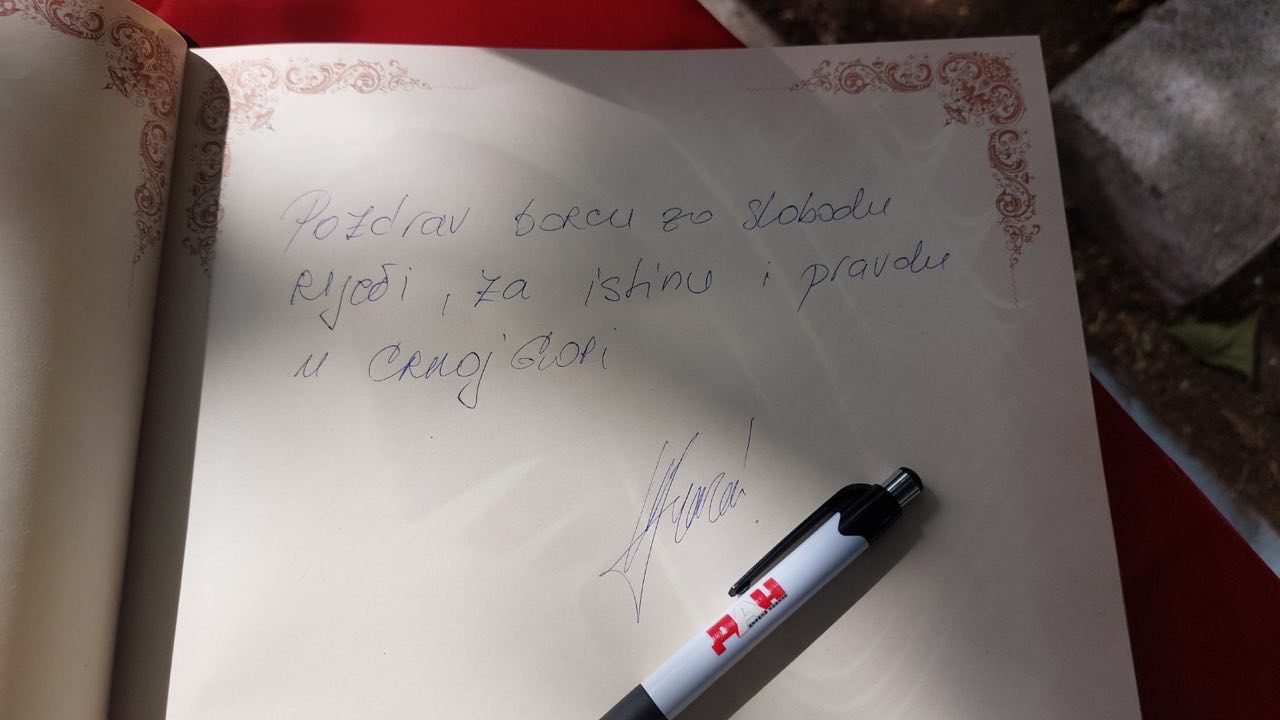 Pozdrav borcu za slobodu
riječi, za istinu i pravdu
u Crnoj Gori
ДАН